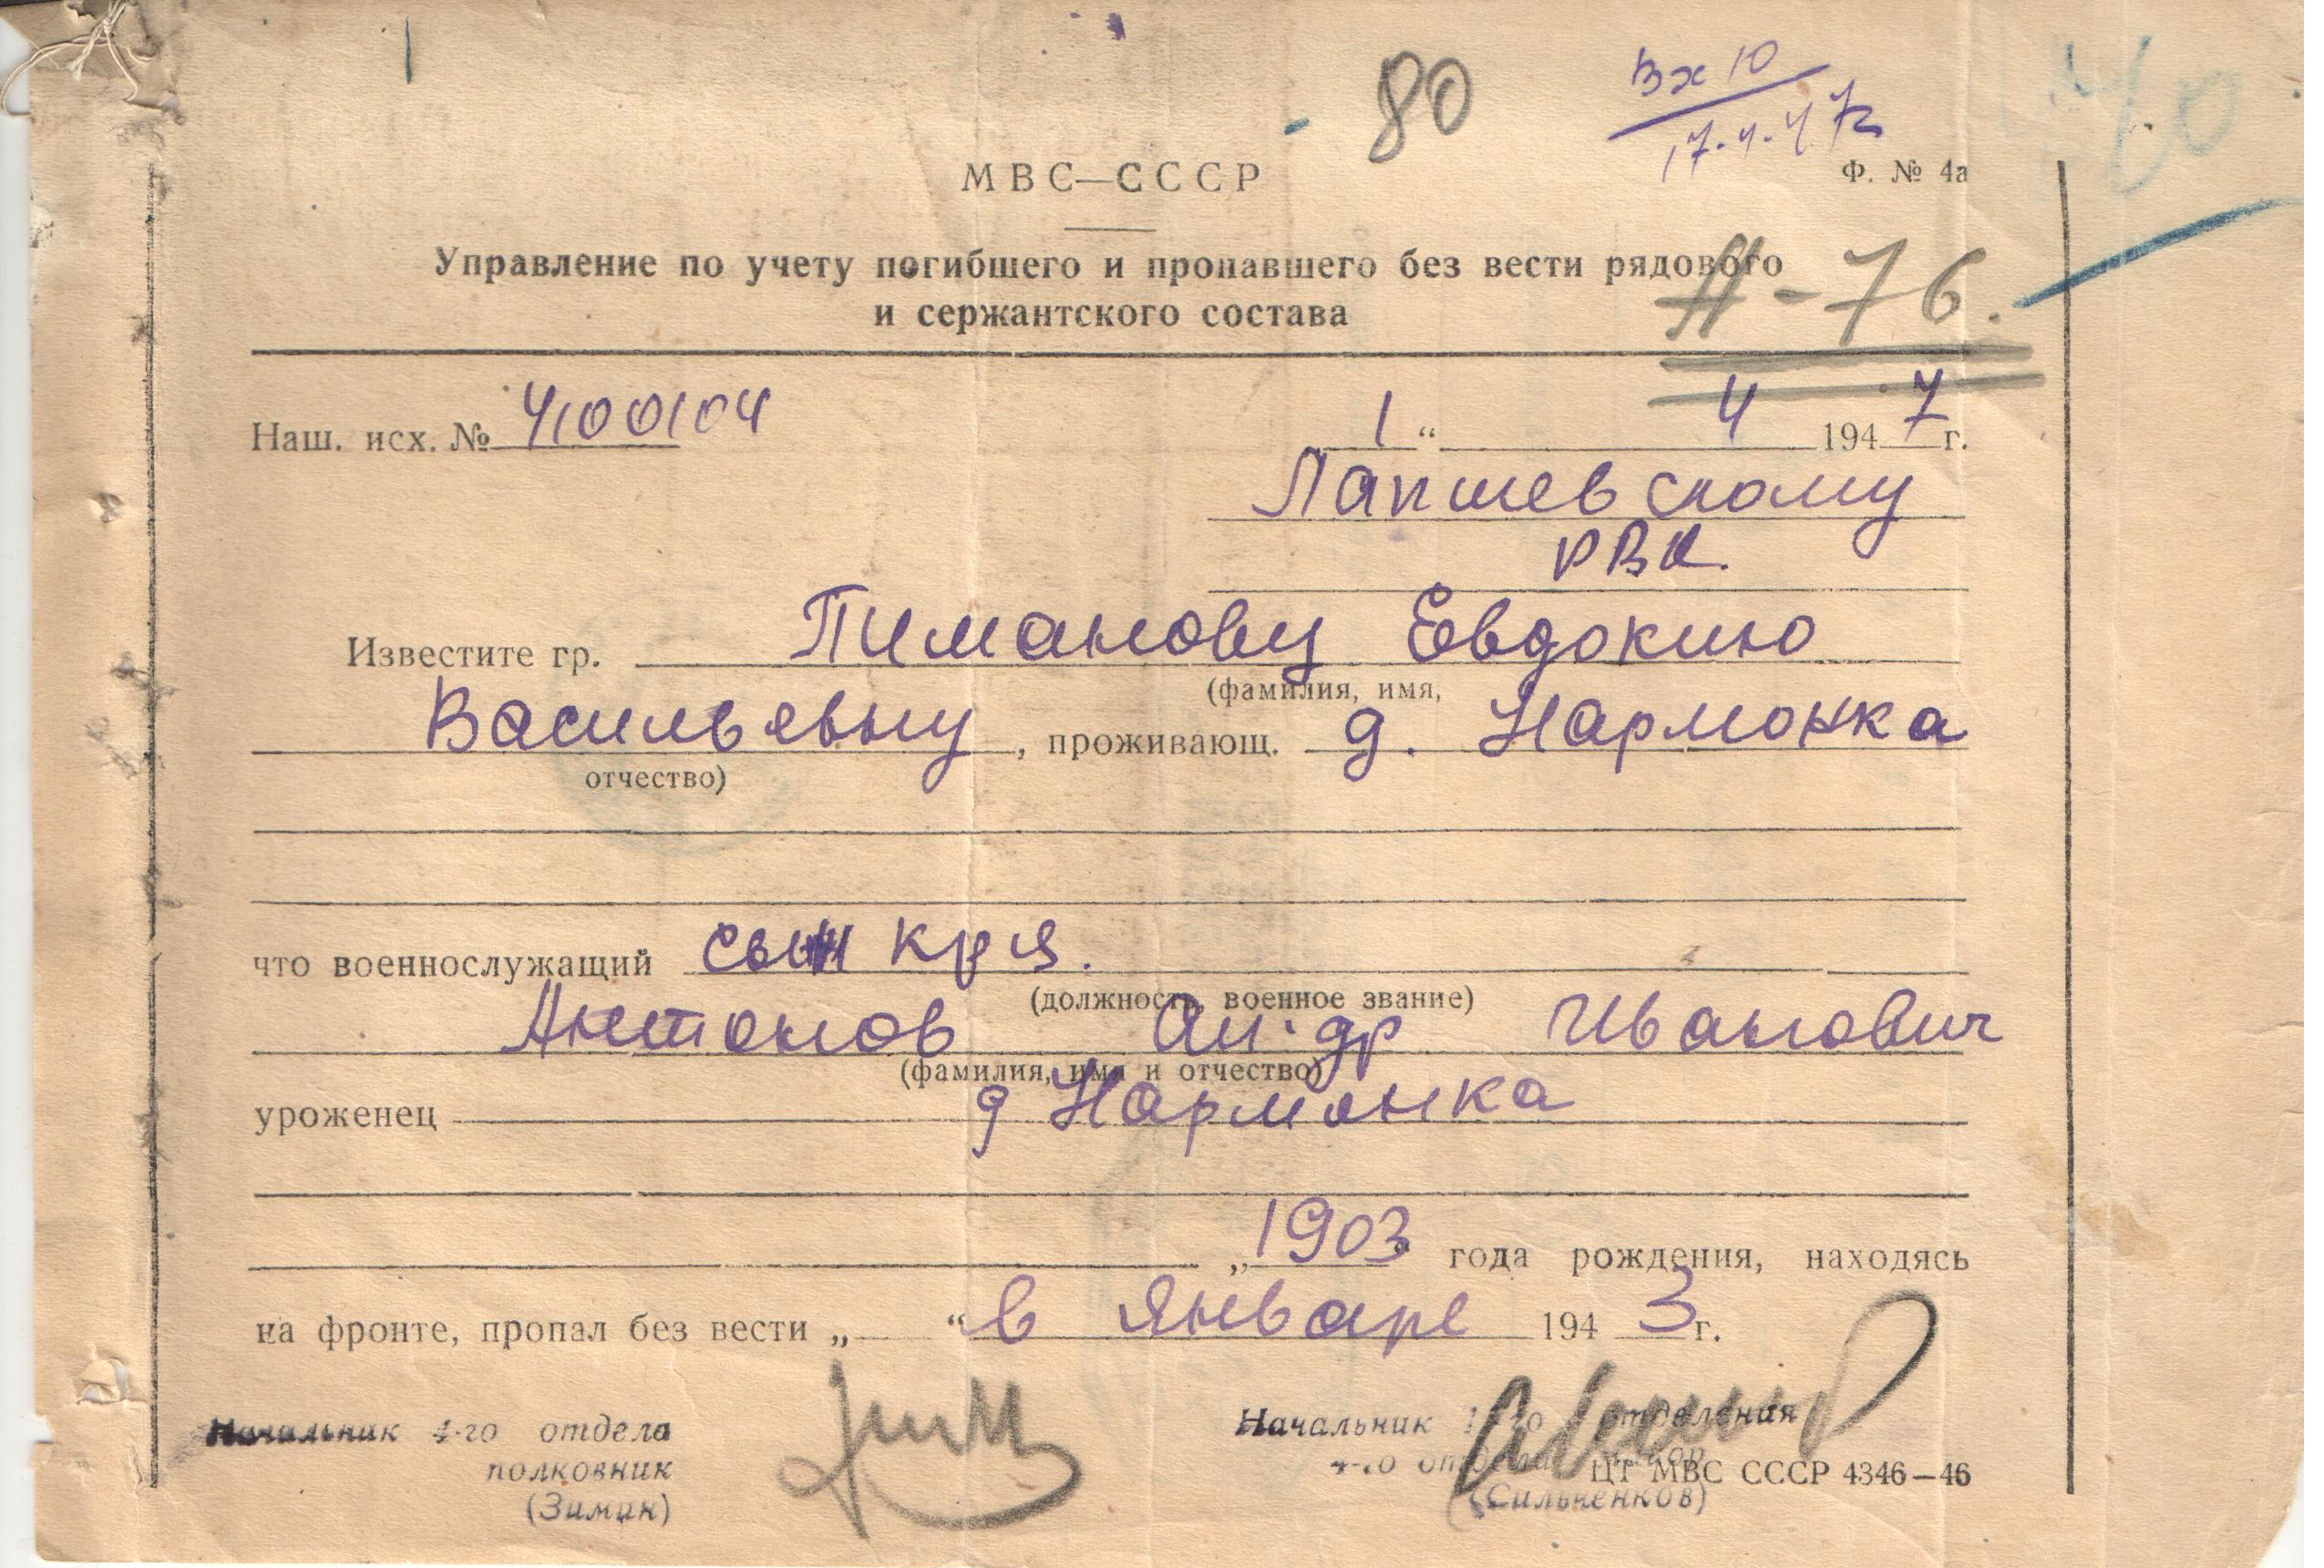 80
Вх 10
17.4.47г
МВС—СССР
Ф. № 4а
Управление по учету погибшего и пропавшего без вести рядового
и сержантского состава
Н-76.
Наш. исх. № 4100104
1 “ 4 1947 г.
Лапшевскому
РВК.
Известите гр. Пиманову Евдокию
(фамилия, имя,
Васильевну, проживающ. д. Нармонка
отчество)
что военнослужащий сын кр-я.
(должность, военное звание)
Антонов Ал-др Иванович
(фамилия, имя и отчество)
уроженец д Нармонка
„1903 года рождения, находясь
на фронте, пропал без вести „ “ в январе 1943 г.
Начальник 4-го отдела
полковник
(Зимин)
Начальник 1-го отделения
4-го отдела майор
(Сильченков)
ЦТ МВС СССР 4346—46